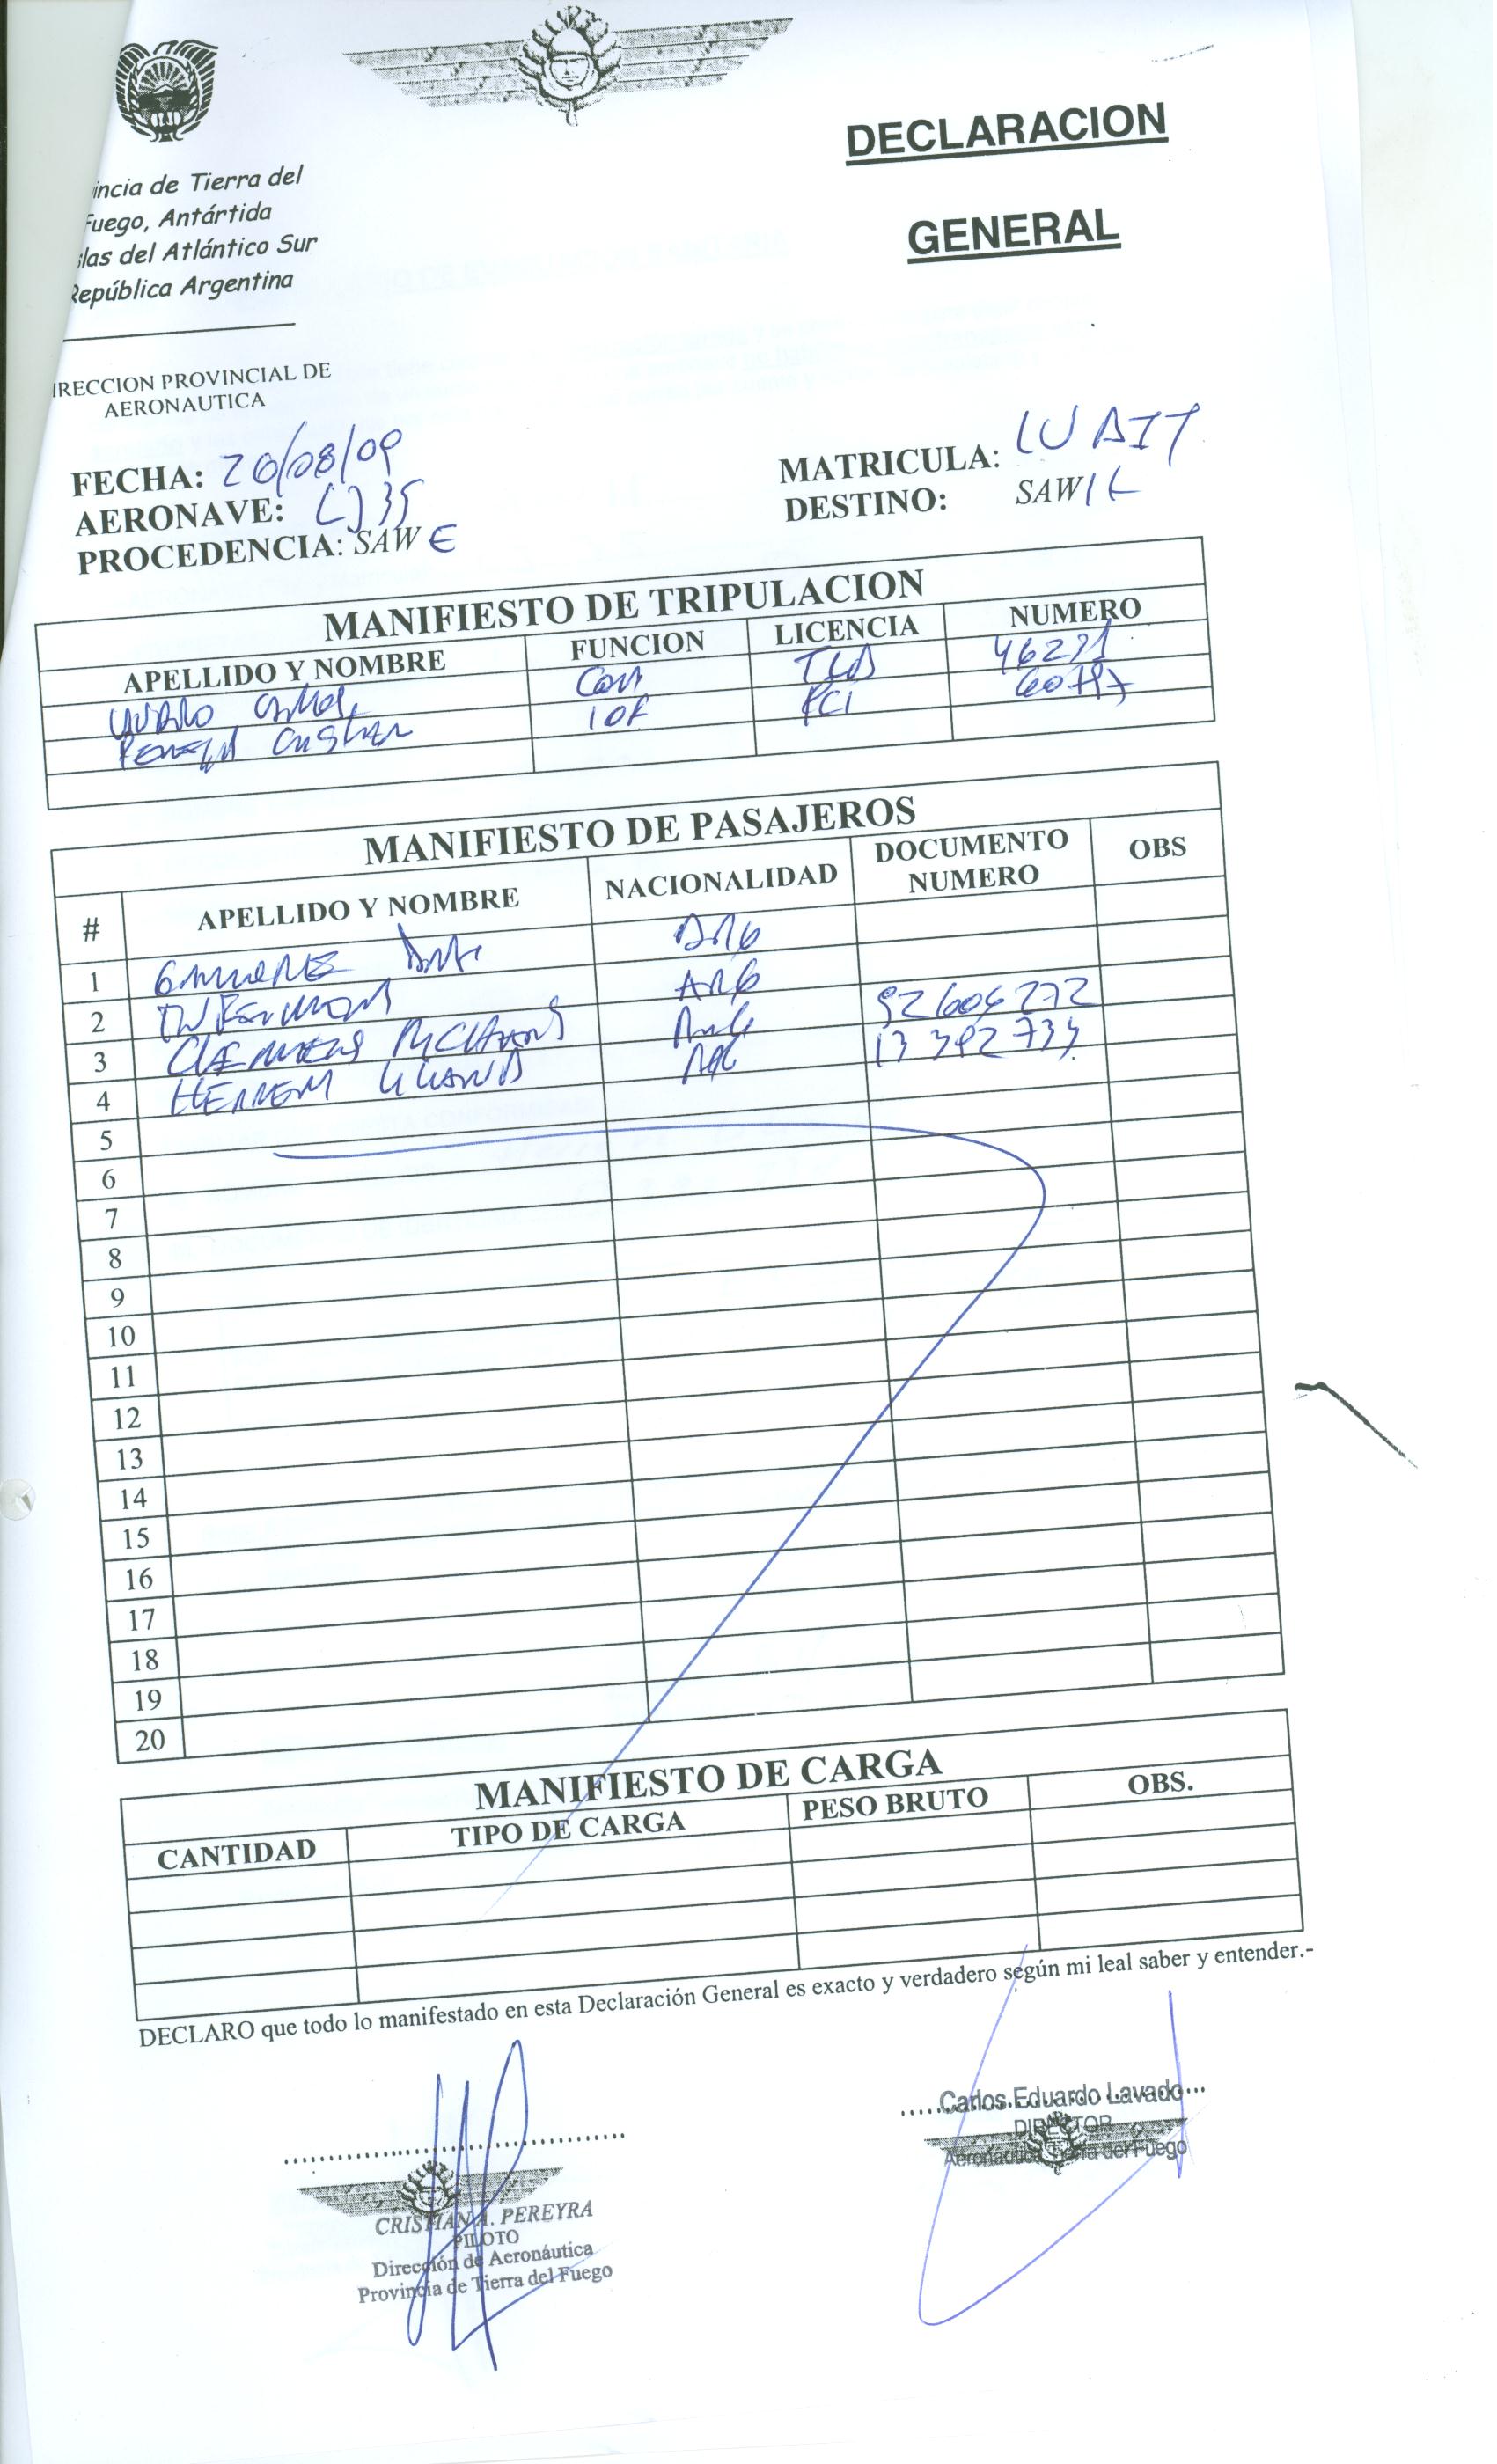 DECLARACION
GENERAL
incia de Tierra del
Fuego, Antártida
slas del Atlántico Sur
República Argentina
IRECCION PROVINCIAL DE
AERONAUTICA
FECHA: 20/08/09
AERONAVE: LJ35
PROCEDENCIA: SAWE
MATRICULA:
DESTINO: SAW
MANIFIESTO DE TRIPULACION
APELLIDO Y NOMBRE FUNCION LICENCIA NUMERO
COM TLA 46231
PCI
MANIFIESTO DE PASAJEROS
# APELLIDO Y NOMBRE NACIONALIDAD DOCUMENTO NUMERO OBS
1 ARG
2 ARG
3 ARG 92604272
4 HERRERA ARG 13392733
5
6
7
8
9
10
11
12
13
14
15
16
17
18
19
20
MANIFIESTO DE CARGA
CANTIDAD TIPO DE CARGA PESO BRUTO OBS.
DECLARO que todo lo manifestado en esta Declaración General es exacto y verdadero según mi leal saber y entender.-
CRISTIAN A. PEREYRA
PILOTO
Dirección de Aeronáutica
Provincia de Tierra del Fuego
Carlos Eduardo Lavado
DIRECTOR
Aeronáutica Tierra del Fuego